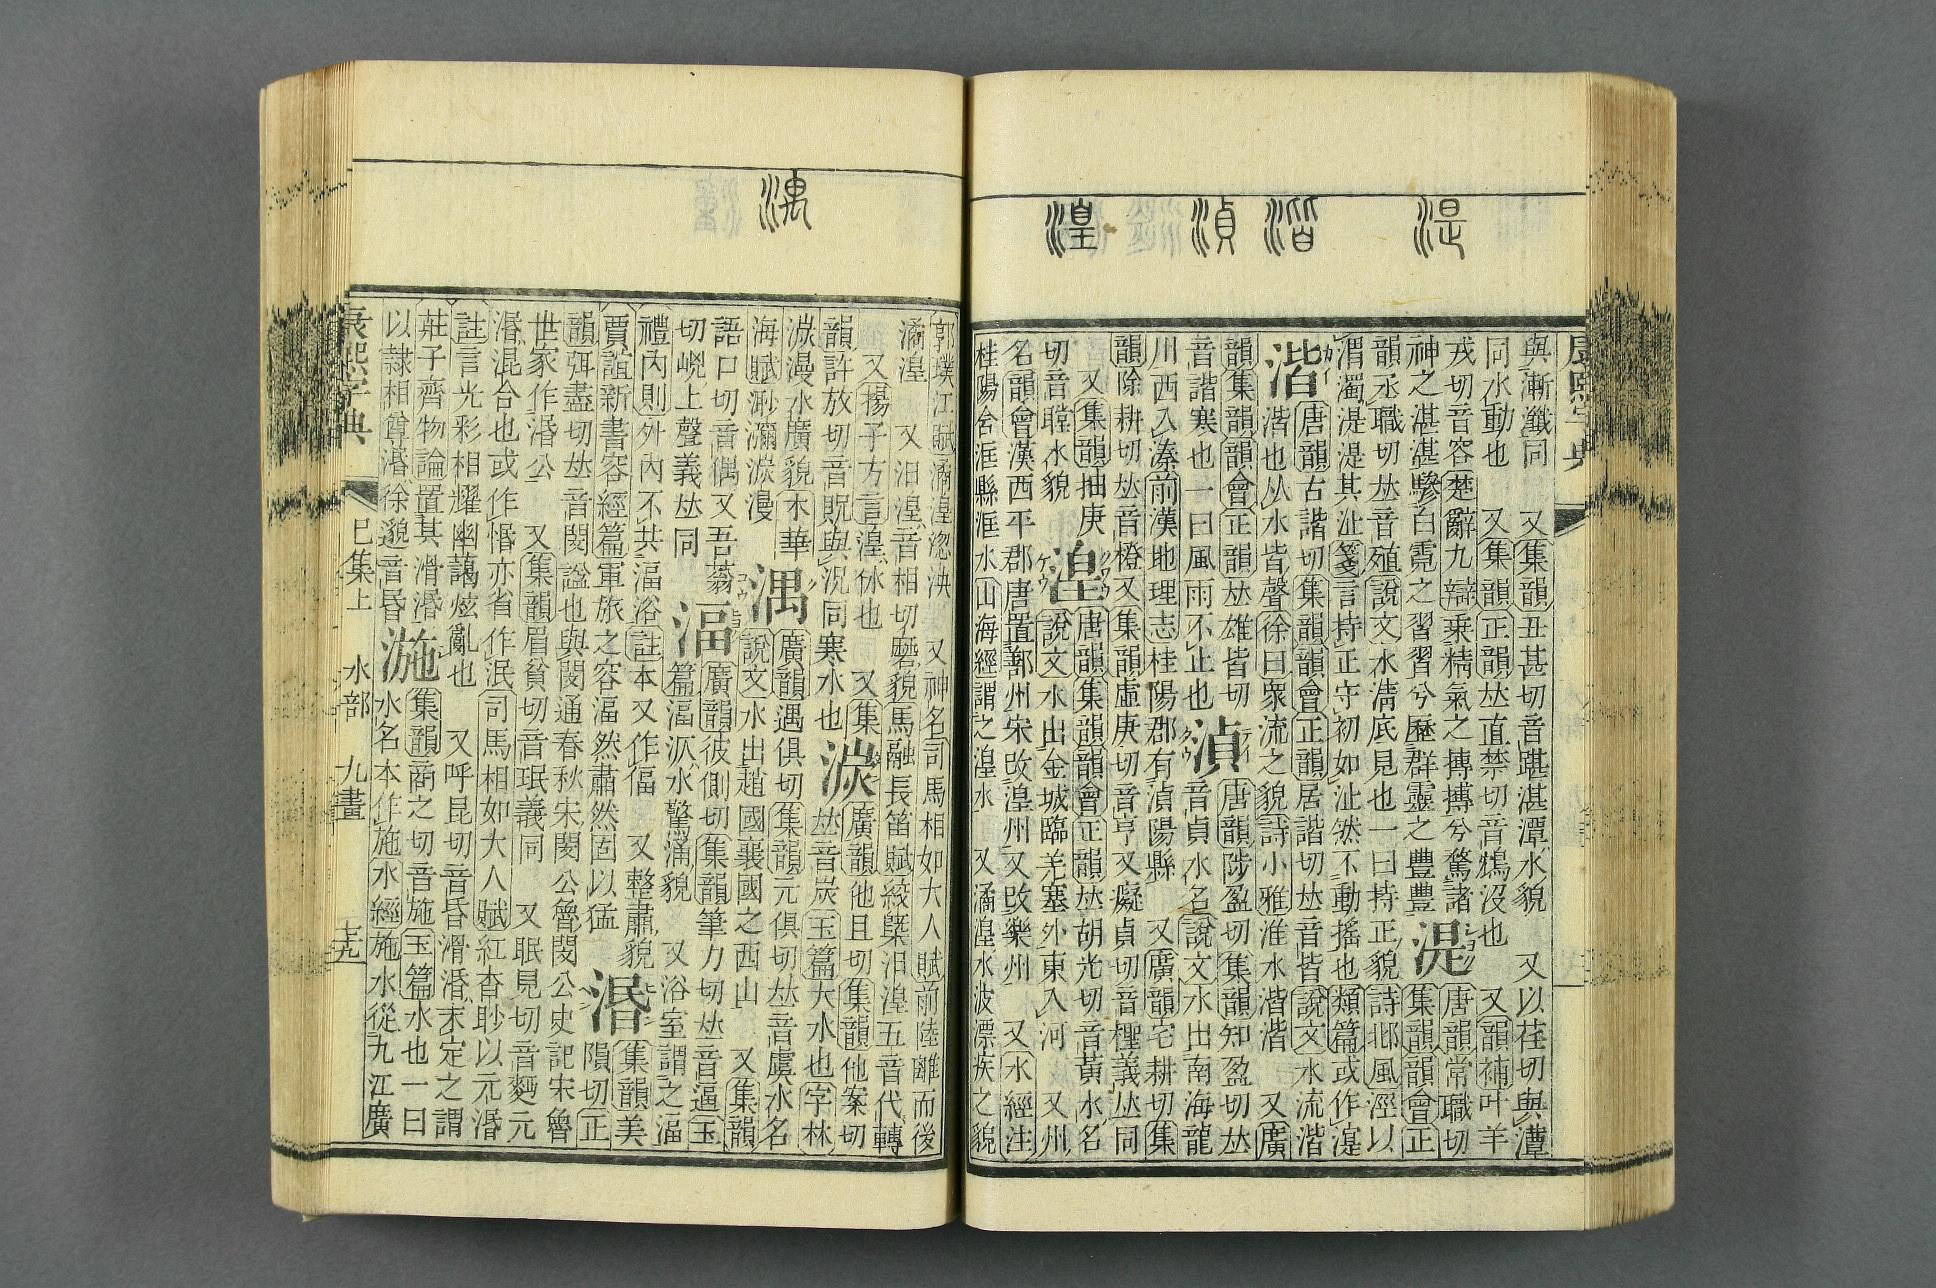 湜
湝
湞
湟
康熙字典
與漸瀸同　又集韻丑甚切音踸湛潭水貌　又以荏切與潭
同水動也　又集韻正韻𠀤直禁切音鴆沒也　又韻補叶羊
戎切音容楚辭九辯乗精氣之摶摶兮騖諸
神之湛湛驂白霓之習習兮歷群靈之豐豐
湜
唐韻常職切
集韻韻會正
韻丞職切𠀤音殖說文水淸底見也一曰持正貌詩邶風涇以
渭濁湜湜其沚箋言持正守初如沚然不動搖也類篇或作
湝
唐韻古諧切集韻韻會正韻居諧切𠀤音皆說文水流湝
湝也从水皆聲徐曰衆流之貌詩小雅淮水湝湝　又廣
韻集韻韻會正韻𠀤雄皆切
音諧寒也一曰風雨不止也
湞
唐韻陟盈切集韻知盈切𠀤
音貞水名說文水出南海龍
川西入溱前漢地理志桂陽郡有湞陽縣　又廣韻宅耕切集
韻除耕切𠀤音橙又集韻虛庚切音亨又癡貞切音檉義𠀤同
又集韻抽庚
切音瞠水貌
湟
唐韻集韻韻會正韻𠀤胡光切音黃水名
說文水出金城臨羌塞外東入河　又州
名韻會漢西平郡唐置鄯州宋改湟州又改樂州　又水經注
桂陽含洭縣洭水山海經謂之湟水　又潏湟水波漂疾之貌
湡
郭璞江賦潏湟淴泱　又神名司馬相如大人賦前陸離而後
潏湟　又汨湟音相切磨貌馬融長笛賦絞槩汨湟五音代轉
又揚子方言湟休也　又集
韻許放切音貺與況同寒水也
湠
廣韻他且切集韻他案切
𠀤音炭玉篇大水也字林
湠漫水廣貌木華
海賦渺瀰湠漫
湡
廣韻遇俱切集韻元俱切𠀤音虞水名
說文水出趙國襄國之西山　又集韻
語口切音偶又吾蓊
切㟴上聲義𠀤同
湢
廣韻彼側切集韻筆力切𠀤音逼玉
篇湢泒水驚涌貌　又浴室謂之湢
禮內則外內不共湢浴註本又作偪　又整肅貌
賈誼新書容經篇軍旅之容湢然肅然固以猛
湣
集韻美
隕切正
韻弭盡切𠀤音閔諡也與閔通春秋宋閔公魯閔公史記宋魯
世家作湣公　又集韻眉貧切音珉義同　又眠見切音麪元
湣混合也或作惛亦省作泯司馬相如大人賦紅杳眇以元湣
註言光彩相耀幽藹炫亂也　又呼昆切音昏滑湣未定之謂
莊子齊物論置其滑湣
以隸相尊湣徐邈音昏
湤
集韻商之切音施玉篇水也一曰
水名本作施水經施水從九江廣
康熙字典　巳集上　水部　九畫